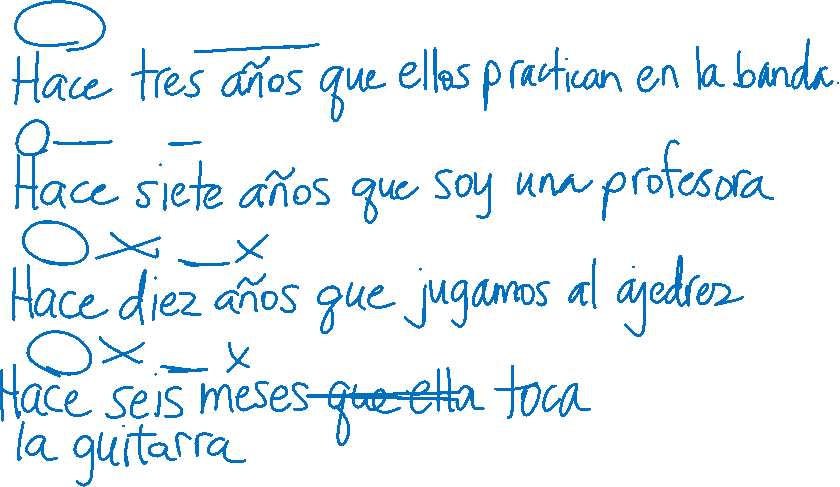 Hace tres años que ellos practican en la banda.
Hace siete años que soy una profesora
Hace diez años que jugamos al ajedrez
Hace seis meses que ella toca
la guitarra